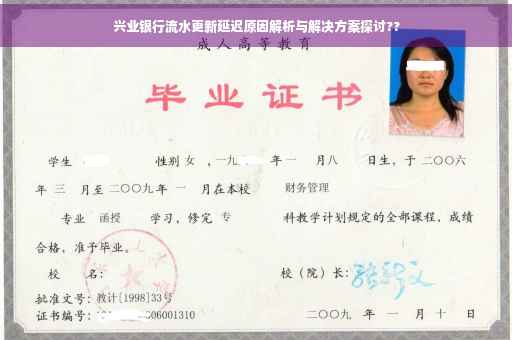 兴业银行流水更新延迟原因解析与解决方案探讨??
成人高等教育
毕业证书
学生 性别 女 ，一九 年 一 月八 日生，于 二〇〇六
年 三 月至 二〇〇九 年 一 月在本校 财务管理
专业 函授 学习，修完 专 科教学计划规定的全部课程，成绩
合格，准予毕业。
校 名： 校（院）长：
批准文号：教计[1998]33号
证书编号： 06001310 二〇〇九 年 一 月 十 日